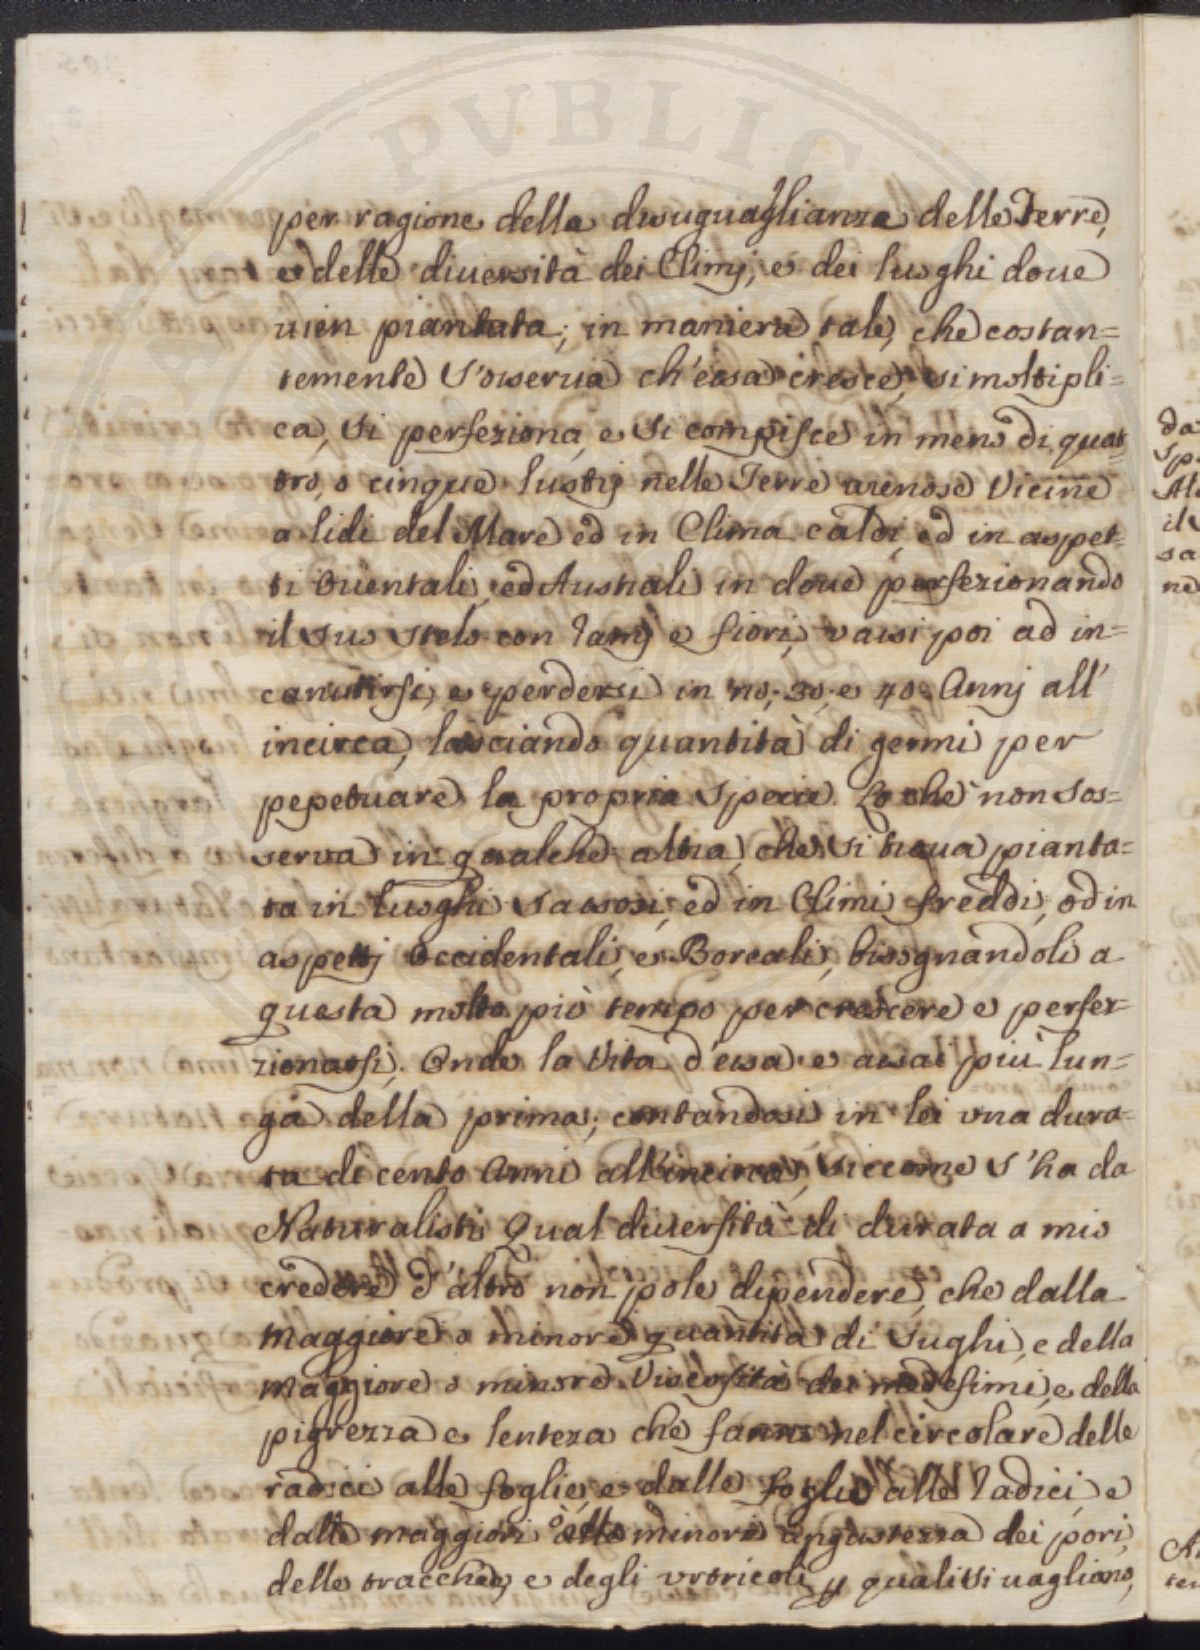 PVBLIC
per ragione della disuguaglianza delle Terre,
e delle diuersità dei Climj, e dei luoghi doue
uien piantata; in maniera tale, che costan=
temente s'osserua ch'essa cresce, si moltipli=
ca, si perfeziona, e si compisce in meno di quat=
tro, o cinque lustrj nelle Terre arenose Vicine
a lidi del Mare ed in Clima caldi, ed in aspet=
ti Orientali, ed Australi in doue perfezionando
il suo stelo con ramj e fiori, vassi poi ad in=
canutirsi, e perdersi in 30, e 40 Annj all'
incirca, lasciando quantità di germi per
pepetuare la propria specie. Lo che non sos=
serva in qualche altra, che si troua pianta=
ta in luoghi sassosi, ed in Climi freddi, od in
aspettj Occidentali, e Boreali, bisognandoli a
questa molto più tempo per crescere e perfe=
zionarsi. Onde la Vita d'essa e assai più lun=
ga della prima; contandosi in lei vna dura=
ta di cento Anni all'incirca, siccome s'ha da
Naturalisti. Qual diuersità di durata a mio
credere d'altro non pole dipendere, che dalla
maggiore o minore quantità di sughi, e della
maggiore o minore Viscosità dei medesimi, e della
pigrezza e lenteza che fanno nel circolare delle
radici alle foglie, e dalle foglie alle radici, e
dalle maggiori ò minori angustezza dei pori,
delle tracchee, e degli vtricoli qualisi uagliono,
da
Spe
il
sa
ne